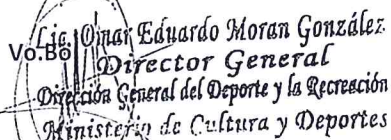 Lic. Omar Eduardo Moran González
Vo.Bo
Director General
Dirección General del Deporte y la Recreación
Ministerio de Cultura y Deportes